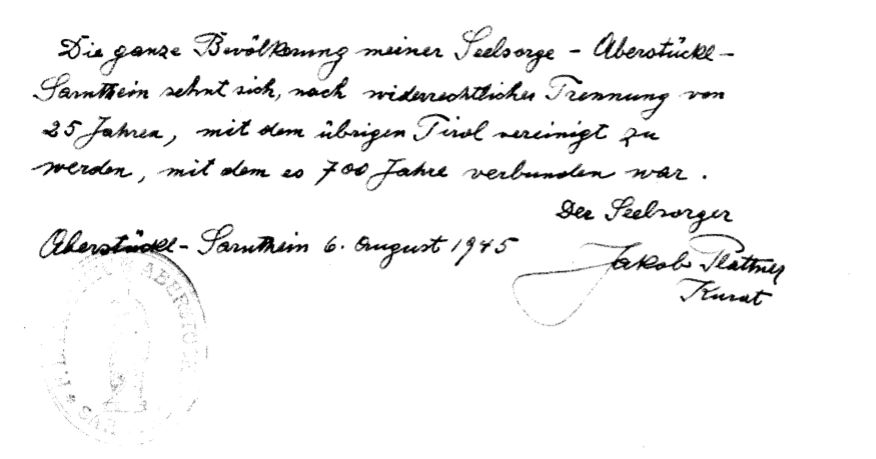 Die ganze Bevölkerung meiner Seelsorge - Aberstückl -
Sarnthein sehnt sich, nach widerrechtlicher Trennung von
25 Jahren, mit dem übrigen Tirol vereinigt zu
werden, mit dem es 700 Jahre verbunden war.
Der Seelsorger
Aberstückl - Sarnthein 6. August 1945
Jakob Plattner
Kurat
ABERSTÜCKL